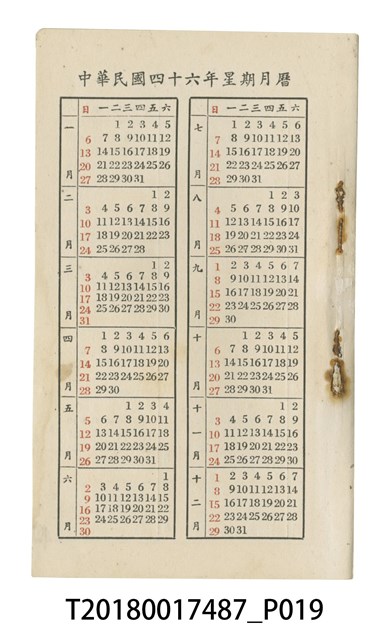 中華民國四十六年星期月曆
日 一 二 三 四 五 六
一月
1 2 3 4 5
6 7 8 9 10 11 12
13 14 15 16 17 18 19
20 21 22 23 24 25 26
27 28 29 30 31
二月
1 2
3 4 5 6 7 8 9
10 11 12 13 14 15 16
17 18 19 20 21 22 23
24 25 26 27 28
三月
1 2
3 4 5 6 7 8 9
10 11 12 13 14 15 16
17 18 19 20 21 22 23
24 25 26 27 28 29 30
31
四月
1 2 3 4 5 6
7 8 9 10 11 12 13
14 15 16 17 18 19 20
21 22 23 24 25 26 27
28 29 30
五月
1 2 3 4
5 6 7 8 9 10 11
12 13 14 15 16 17 18
19 20 21 22 23 24 25
26 27 28 29 30 31
六月
1
2 3 4 5 6 7 8
9 10 11 12 13 14 15
16 17 18 19 20 21 22
23 24 25 26 27 28 29
30
日 一 二 三 四 五 六
七月
1 2 3 4 5 6
7 8 9 10 11 12 13
14 15 16 17 18 19 20
21 22 23 24 25 26 27
28 29 30 31
八月
1 2 3
4 5 6 7 8 9 10
11 12 13 14 15 16 17
18 19 20 21 22 23 24
25 26 27 28 29 30 31
九月
1 2 3 4 5 6 7
8 9 10 11 12 13 14
15 16 17 18 19 20 21
22 23 24 25 26 27 28
29 30
十月
1 2 3 4 5
6 7 8 9 10 11 12
13 14 15 16 17 18 19
20 21 22 23 24 25 26
27 28 29 30 31
十一月
1 2
3 4 5 6 7 8 9
10 11 12 13 14 15 16
17 18 19 20 21 22 23
24 25 26 27 28 29 30
十二月
1 2 3 4 5 6 7
8 9 10 11 12 13 14
15 16 17 18 19 20 21
22 23 24 25 26 27 28
29 30 31
T20180017487_P019